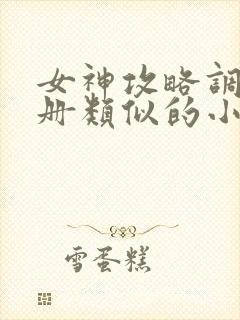 女神攻略調
册類似的小
雪蛋糕